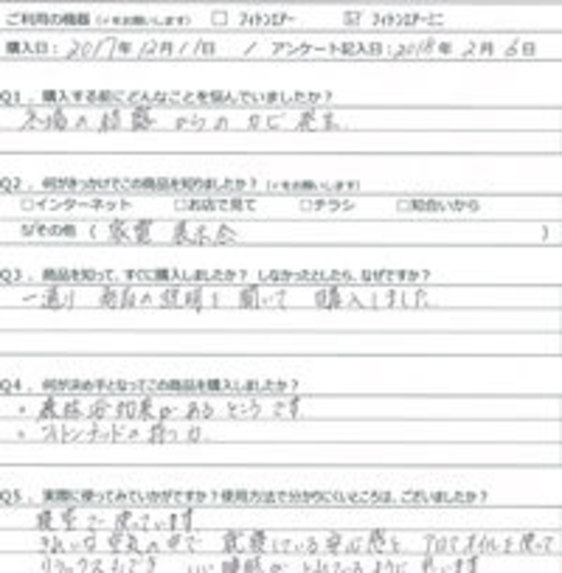 ご利用の機器（✓をお願いします） □ フィトンエアー ☑ フィトンエアーミニ
購入日：2017年12月11日 / アンケート記入日：2018年2月6日
Q1．購入する前にどんなことを悩んでいましたか？
冬場の結露からのカビ発生.
Q2．何がきっかけでこの商品を知りましたか？（✓をお願いします）
□インターネット □お店で見て □チラシ □知合いから
☑その他（家電展示会）
Q3．商品を知って、すぐに購入しましたか？ しなかったとしたら、なぜですか？
一通り 商品の説明を聞いて 購入しました.
Q4．何が決め手となってこの商品を購入しましたか？
・森林浴効果があるところです.
・フィトンチッドの持つ力.
Q5．実際に使ってみていかがですか？使用方法で分かりにくいところは、ございましたか？
寝室で使っています.
きれいな空気の中で 就寝している安心感と アロマオイルを使って
リラックスもでき いい睡眠がとれているように思います